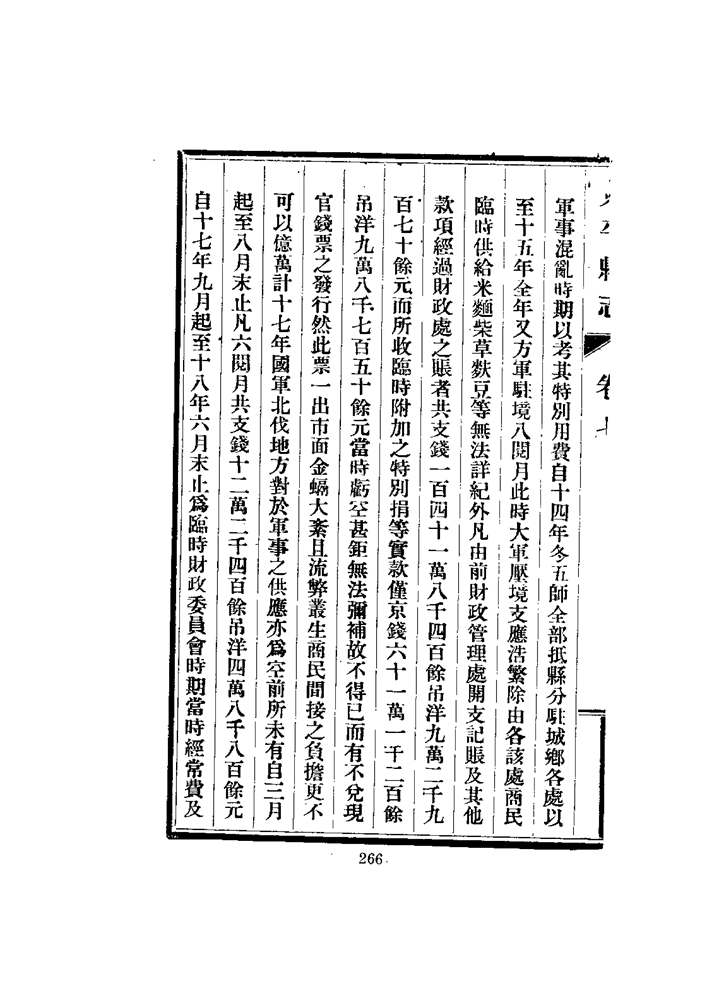 縣志
卷七
軍事混亂時期以考其特別用費自十四年冬五師全部抵縣分駐城鄉各處以
至十五年全年又方軍駐境八閱月此時大軍壓境支應浩繁除由各該處商民
臨時供給米麵柴草麩豆等無法詳紀外凡由前財政管理處開支記賬及其他
款項經過財政處之賬者共支錢一百四十一萬八千四百餘吊洋九萬二千九
百七十餘元而所收臨時附加之特別捐等實款僅京錢六十一萬一千二百餘
吊洋九萬八千七百五十餘元當時虧空甚鉅無法彌補故不得已而有不兌現
官錢票之發行然此票一出市面金融大紊且流弊叢生商民間接之負擔更不
可以億萬計十七年國軍北伐地方對於軍事之供應亦爲空前所未有自三月
起至八月末止凡六閱月共支錢十二萬二千四百餘吊洋四萬八千八百餘元
自十七年九月起至十八年六月末止爲臨時財政委員會時期當時經常費及
266